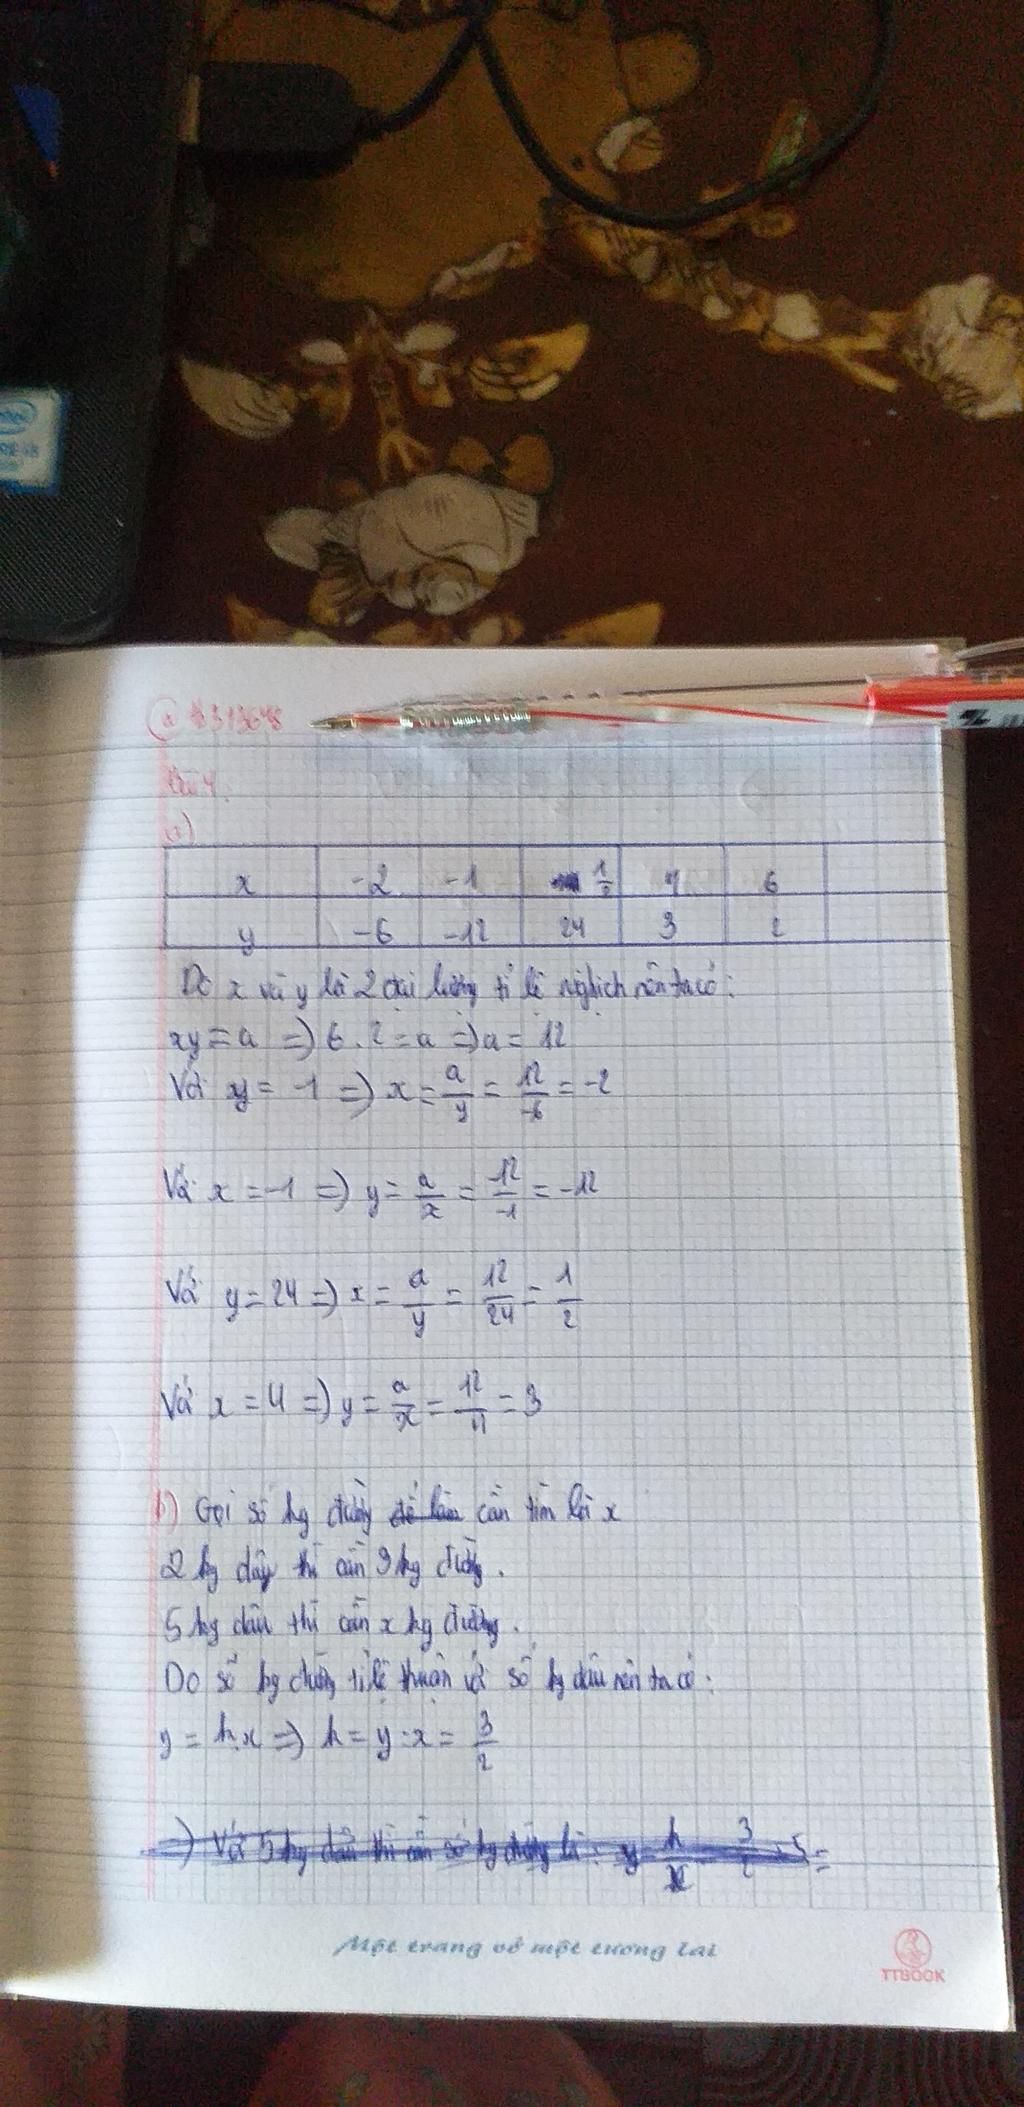 Câu 4:
a)
x -2 -1 1/2 4 6
y -6 -12 24 3 2
Do x và y là 2 đại lượng tỉ lệ nghịch nên ta có:
xy = a => 6 . 2 = a => a = 12
Với y = -1 => x = a/y = 12/-6 = -2
Với x = -1 => y = a/x = 12/-1 = -12
Với y = 24 => x = a/y = 12/24 = 1/2
Với x = 4 => y = a/x = 12/4 = 3
b) Gọi số kg đường để làm cần tìm là x
2 kg dâu thì cần 3 kg đường.
5 kg dâu thì cần x kg đường.
Do số kg đường tỉ lệ thuận với số kg dâu nên ta có:
y = k.x => k = y : x = 3/2
=> Với 5 kg dâu thì cần số kg đường là: y k/x 3/2 . 5 =
Một trang vở một tương lai
TTBOOK